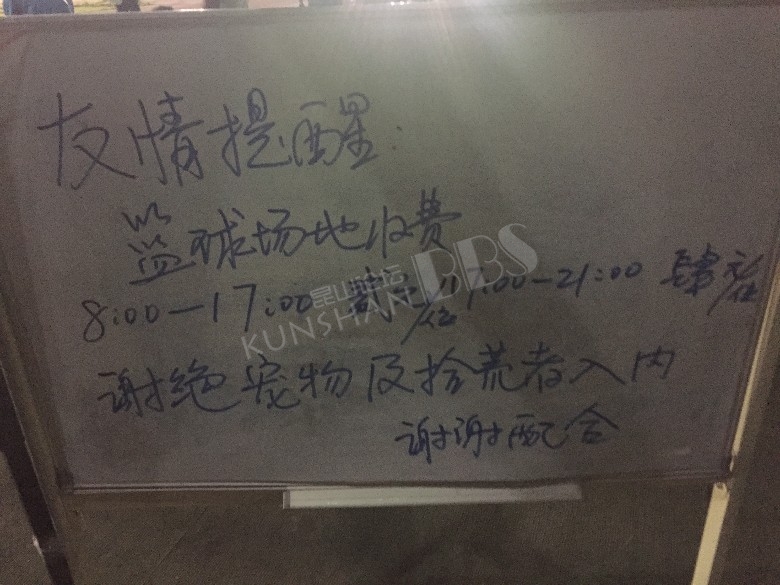 友情提醒:
篮球场地收费
8:00—17:00 贰元/位 17:00—21:00 肆元/位
谢绝宠物及拾荒者入内
谢谢配合
昆山论坛 BBS
KUNSHAN